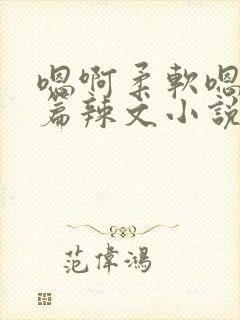 嗯啊柔軟嗯
篇辣文小說
范偉鴻